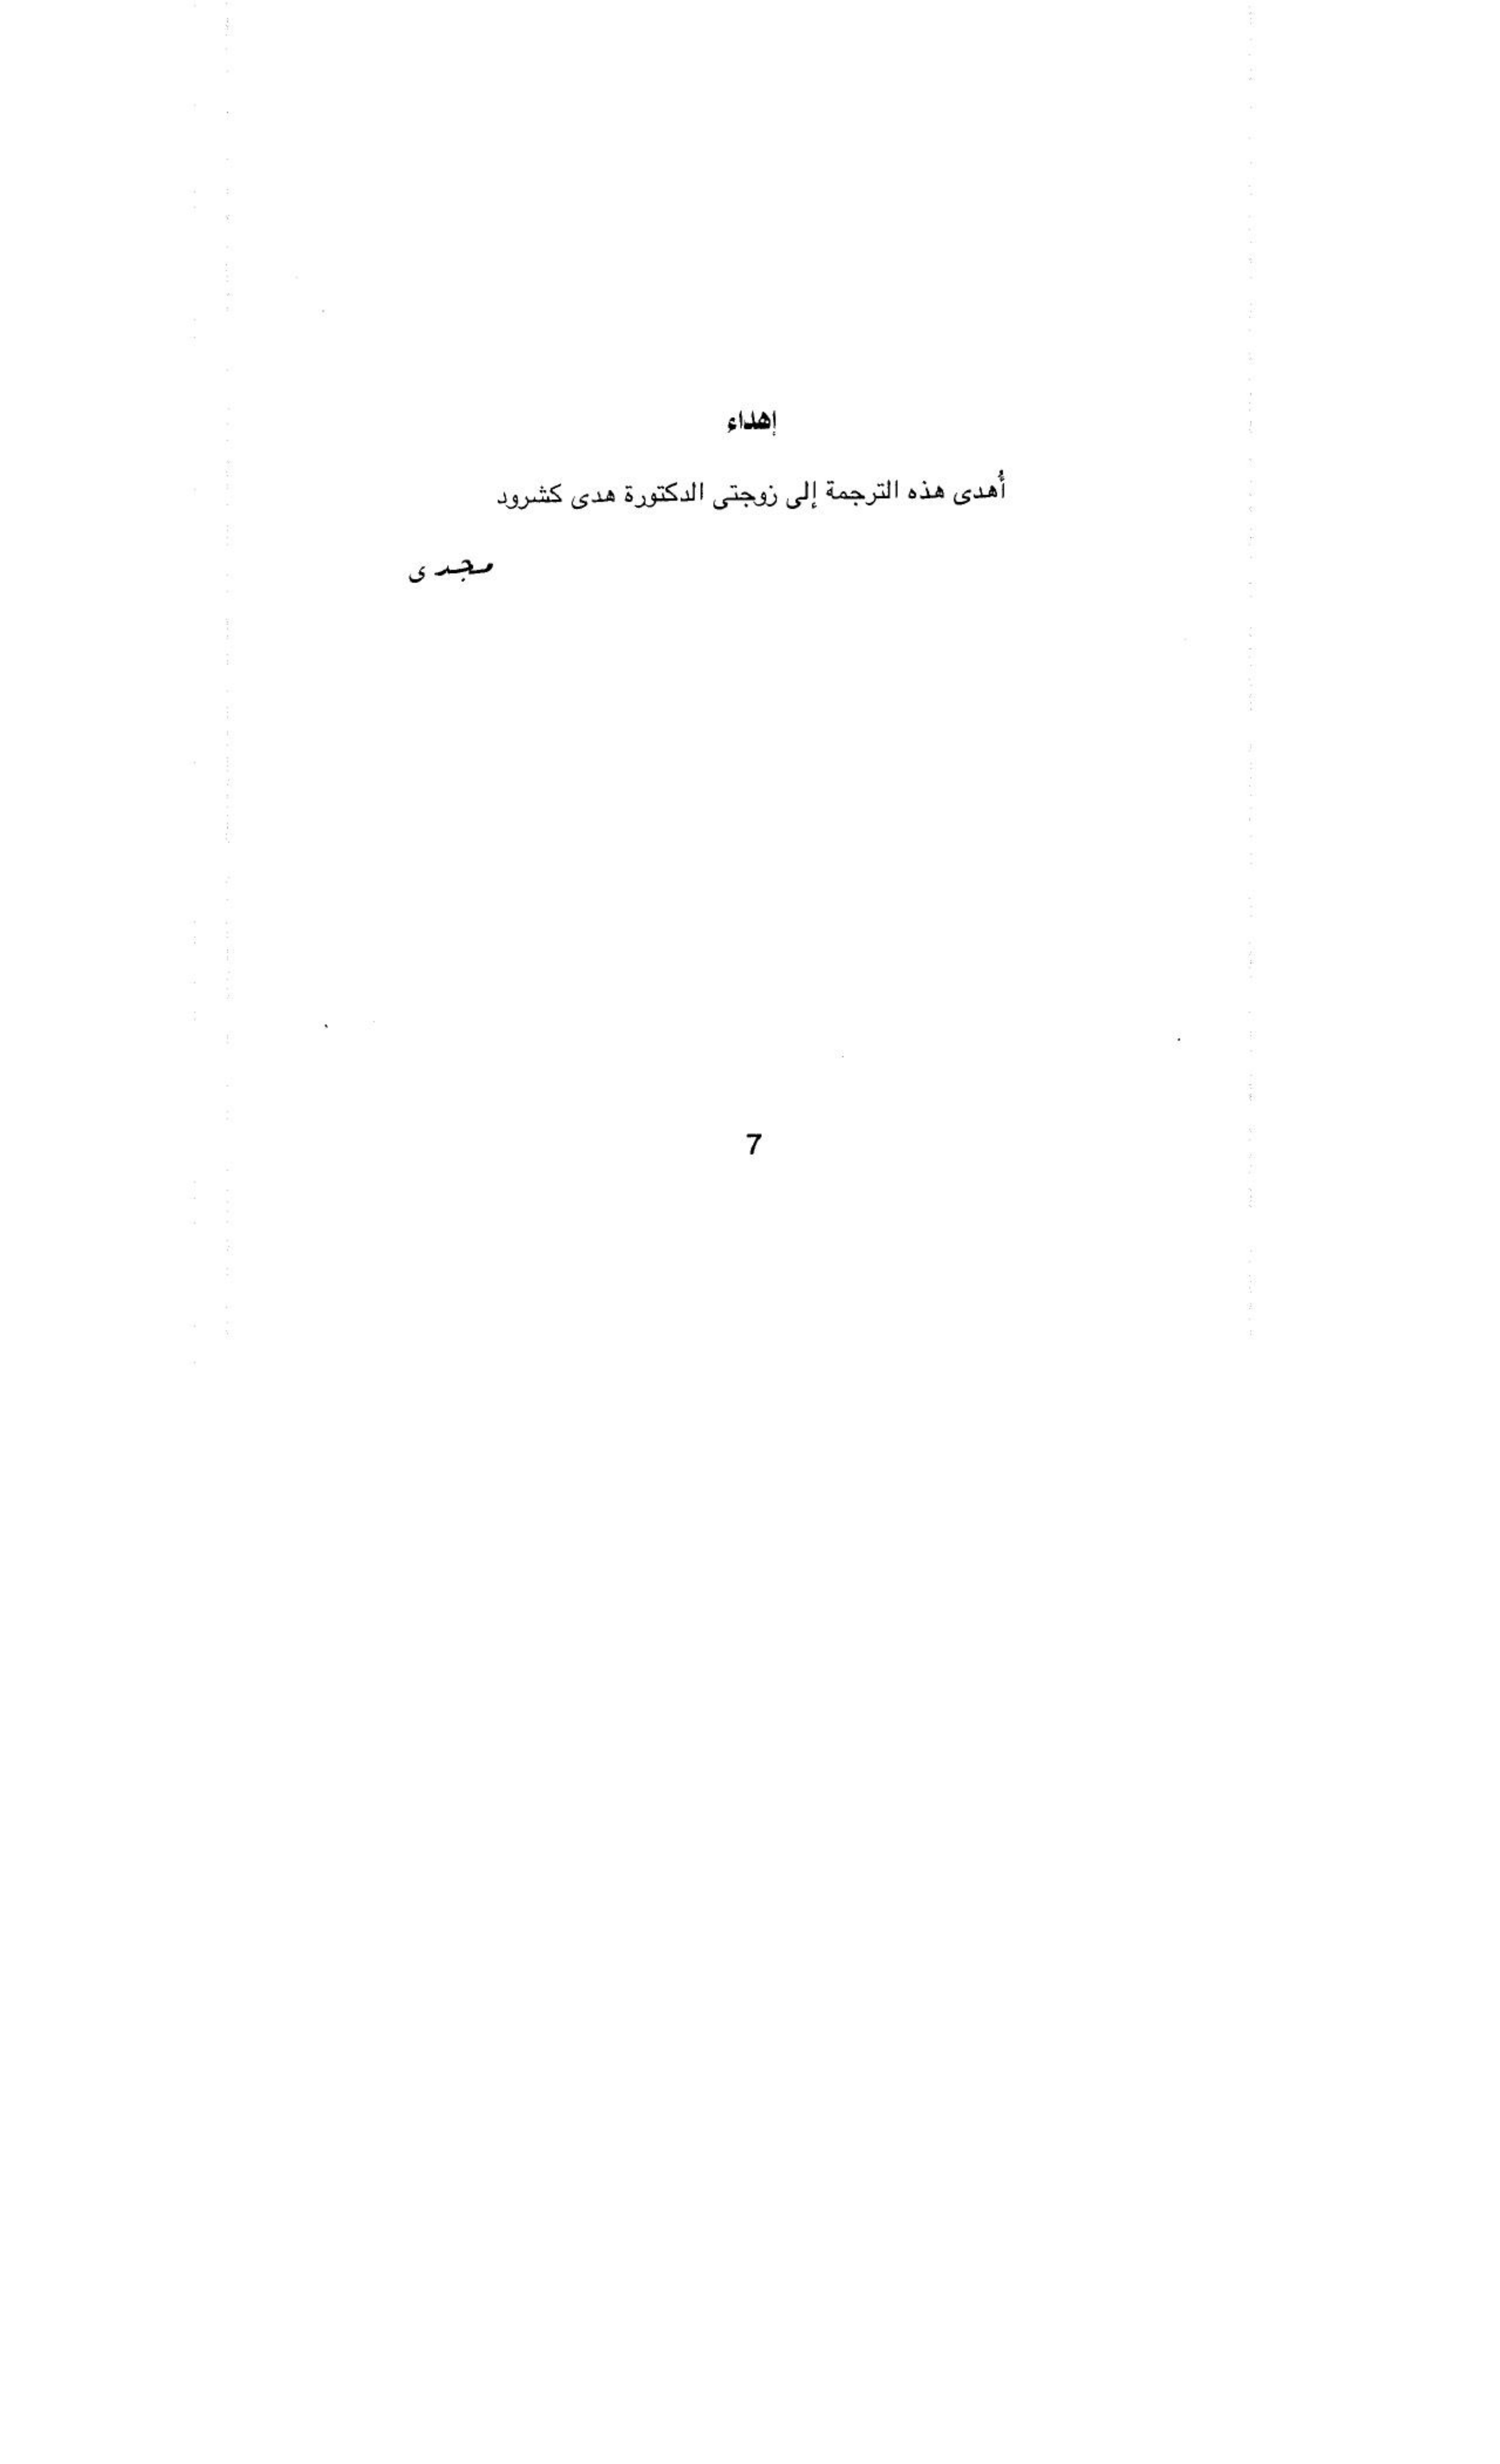 إهداء
أُهدى هذه الترجمة إلى زوجتى الدكتورة هدى كشرود
مجدى
7